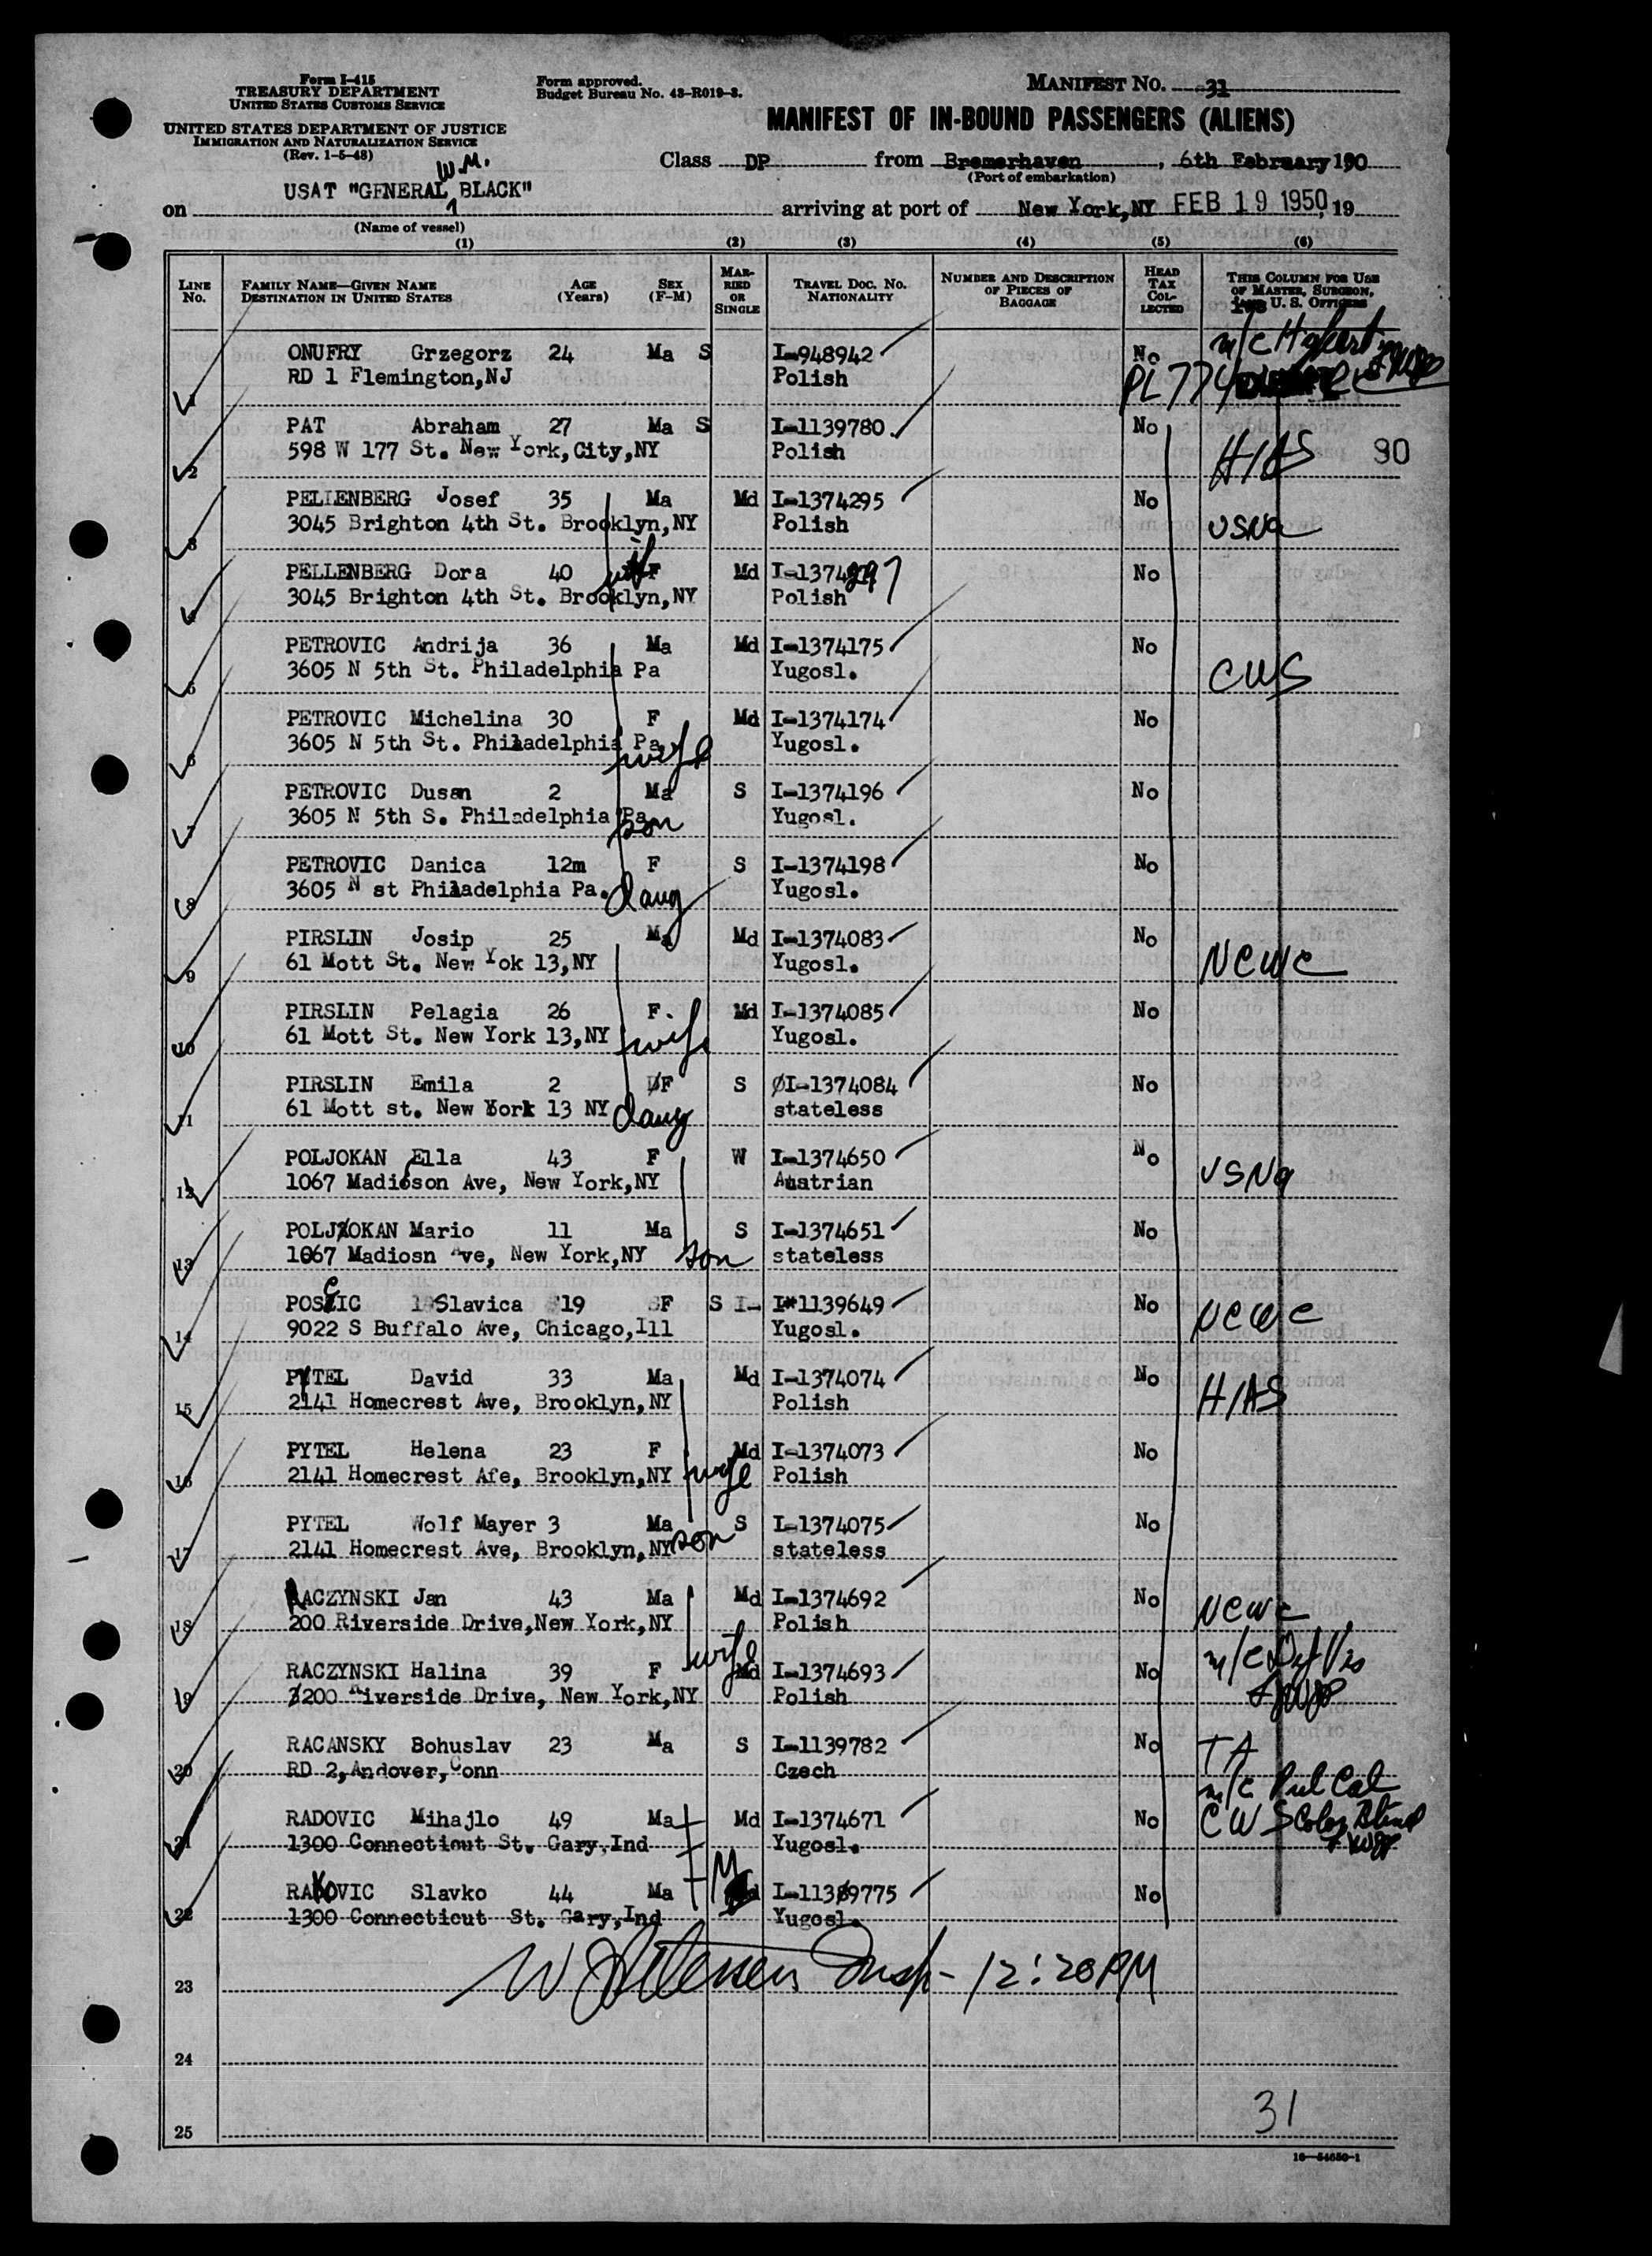 Form I-415
TREASURY DEPARTMENT
UNITED STATES CUSTOMS SERVICE
UNITED STATES DEPARTMENT OF JUSTICE
IMMIGRATION AND NATURALIZATION SERVICE
(Rev. 1-5-48)
Form approved.
Budget Bureau No. 43-R019-3.
MANIFEST No. 31
MANIFEST OF IN-BOUND PASSENGERS (ALIENS)
Class DP from Bremerhaven, 6th February 190
(Port of embarkation)
W.M.
on USAT "GENERAL BLACK" arriving at port of New York,NY FEB 19 1950, 19
(Name of vessel)
(1) (2) (3) (4) (5) (6)
LINE No. FAMILY NAME—GIVEN NAME DESTINATION IN UNITED STATES AGE (Years) SEX (F-M) MARRIED OR SINGLE TRAVEL DOC. No. NATIONALITY NUMBER AND DESCRIPTION OF PIECES OF BAGGAGE HEAD TAX COLLECTED THIS COLUMN FOR USE OF MASTER, SURGEON, AND U. S. OFFICERS
1 ONUFRY Grzegorz 24 Ma S I-948942 No m/c
RD 1 Flemington,NJ Polish PL774
2 PAT Abraham 27 Ma S I-1139780 No HIAS 90
598 W 177 St. New York,City,NY Polish
3 PELLENBERG Josef 35 Ma Md I-1374295 No
3045 Brighton 4th St. Brooklyn,NY Polish USNA
4 PELLENBERG Dora 40 wife F Md I-1374297 No
3045 Brighton 4th St. Brooklyn,NY Polish
5 PETROVIC Andrija 36 Ma Md I-1374175 No
3605 N 5th St. Philadelphia Pa Yugosl. CWS
6 PETROVIC Michelina 30 F Md I-1374174 No
3605 N 5th St. Philadelphia Pa wife Yugosl.
7 PETROVIC Dusan 2 Ma S I-1374196 No
3605 N 5th S. Philadelphia Pa son Yugosl.
8 PETROVIC Danica 12m F S I-1374198 No
3605 N st Philadelphia Pa. daug Yugosl.
9 PIRSLIN Josip 25 Ma Md I-1374083 No
61 Mott St. New Yok 13,NY Yugosl. NCWC
10 PIRSLIN Pelagia 26 F. Md I-1374085 No
61 Mott St. New York 13,NY wife Yugosl.
11 PIRSLIN Emila 2 F S I-1374084 No
61 Mott st. New York 13 NY daug stateless
12 POLJOKAN Ella 43 F W I-1374650 No
1067 Madison Ave, New York,NY Austrian USNA
13 POLJOKAN Mario 11 Ma S I-1374651 No
1067 Madiosn Ave, New York,NY son stateless
14 POSCIC Slavica 19 F S I-1139649 No
9022 S Buffalo Ave, Chicago,Ill Yugosl. NCWC
15 PYTEL David 33 Ma Md I-1374074 No
2141 Homecrest Ave, Brooklyn,NY Polish HIAS
16 PYTEL Helena 23 F Md I-1374073 No
2141 Homecrest Afe, Brooklyn,NY wife Polish
17 PYTEL Wolf Mayer 3 Ma S I-1374075 No
2141 Homecrest Ave, Brooklyn,NY son stateless
18 RACZYNSKI Jan 43 Ma Md I-1374692 No
200 Riverside Drive,New York,NY Polish NCWC
19 RACZYNSKI Halina 39 F wife Md I-1374693 No m/c Def Vis
200 Riverside Drive, New York,NY Polish
20 RACANSKY Bohuslav 23 Ma S I-1139782 No TA
RD 2,Andover,Conn Czech m/c Pul Cal
21 RADOVIC Mihajlo 49 Ma Md I-1374671 No CWS Color Blind
1300 Connecticut St. Gary,Ind Yugosl.
22 RAKOVIC Slavko 44 Ma M I-1139775 No
1300 Connecticut St. Gary,Ind Yugosl.
23 Insp- 12:20PM
24
25 31
16—54650-1